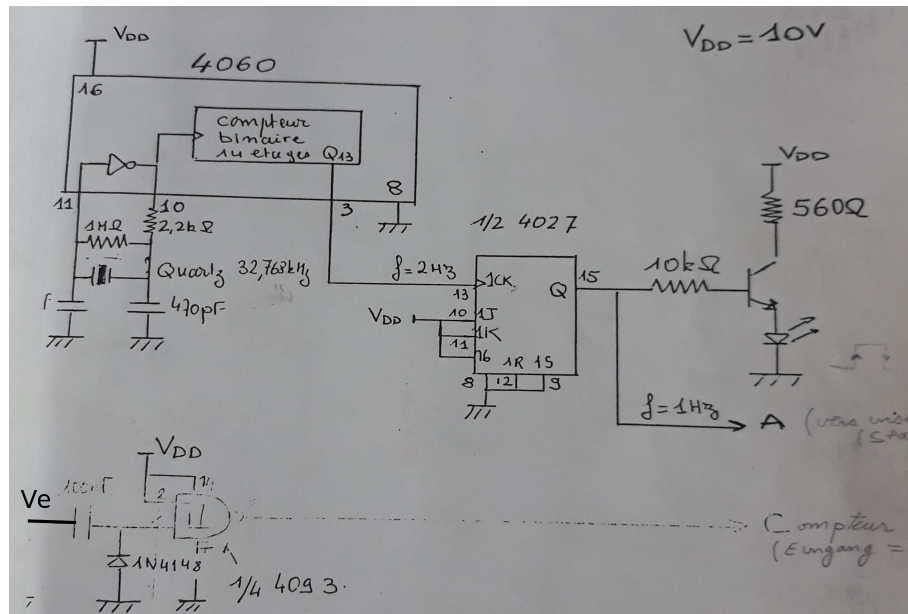 VDD
VDD = 10V
4060
16
compteur
binaire
14 etages Q13
8
11
10
3
1MΩ
2,2kΩ
Quartz 32,768kHz
F
470pF
VDD
560Ω
1/2 4027
f=2Hz
13
1CK
Q
15
10kΩ
VDD
10
1J
1K
11
16
1R 1S
8
12
9
f=1Hz
A (vers
VDD
Ve
100nF
2
14
1N4148
1/4 4093.
Compteur
(Eingang =